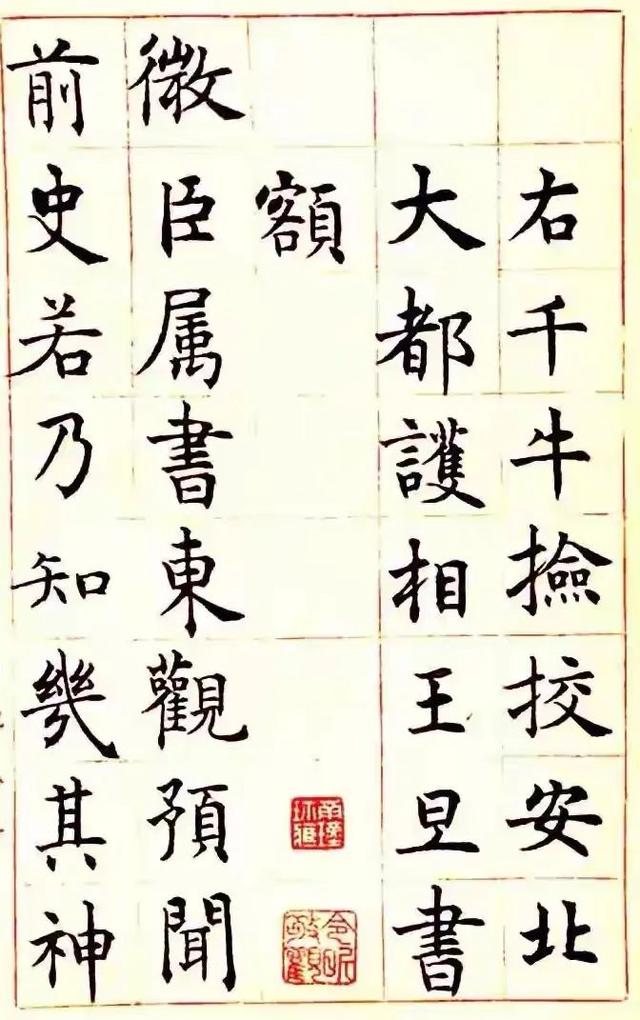 右千牛撿挍安北
大都護相王旦書
額
微臣属書東觀預聞
前史若乃知幾其神